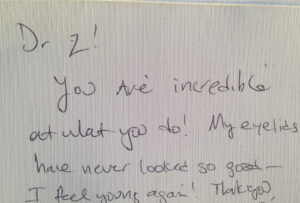 Dr Z!
You are incredible
at what you do! My eyelids
have never looked so good—
I feel young again! Thank you,